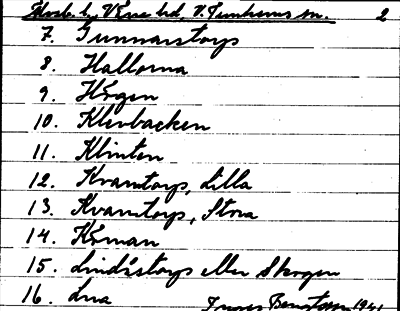 V. Tunhems sn. 2
7. Gunnarstorp
8. Hallorna
9. Högen
10. Klevbacken
11. Klinten
12. Kvarntorp, Lilla
13. Kvarntorp, Stora
14. Kärnan
15. Lindåstorp eller Skogen
16. Lua Inger Bengtsson 1941